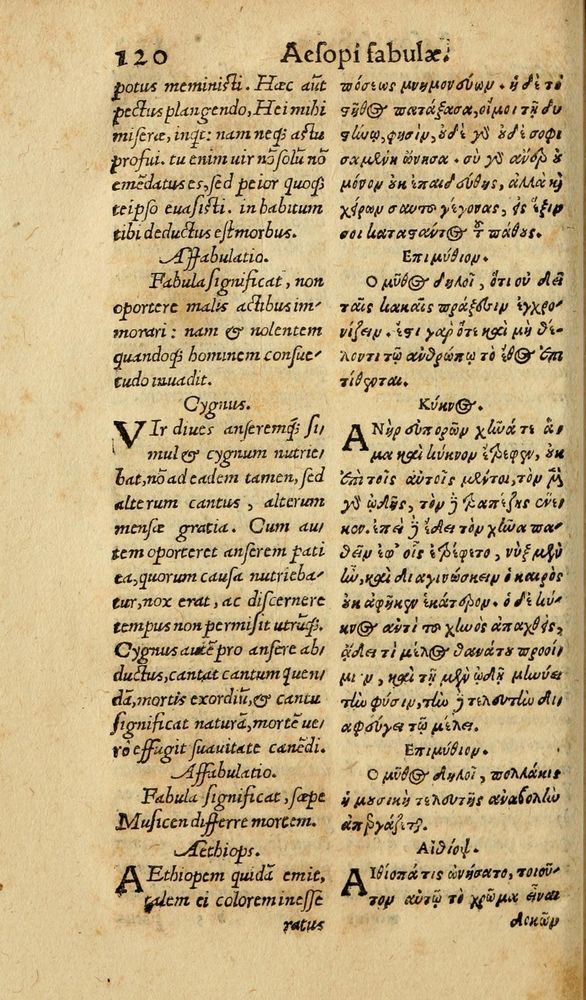 120 Aesopi fabulæ.
potus meministi. Hæc aūt
pectus plangendo, Hei mihi
miseræ, inqt: nam neqꝫ astu
profui. tu enim uir nō solū nō
emēdatus es, sed peior quoqꝫ
teipso euasisti. in habitum
tibi deductus est morbus.
Affabulatio.
Fabula significat, non
oportere malis actibus im-
morari: nam & nolentem
quandoqꝫ hominem consue-
tudo inuadit.
Cygnus.
VIr diues anseremqꝫ si
mul & cygnum nutrie-
bat, nō ad eadem tamen, sed
alterum cantus, alterum
mensæ gratia. Cum au-
tem oporteret anserem pati
ea, quorum causa nutrieba-
tur, nox erat, ac discernere
tempus non permisit utrūqꝫ.
Cygnus autē pro ansere ab
ductus, cantat cantum quen
dā, mortis exordiū, & cantu
significat naturā, mortē ue-
rò effugit suauitate canēdi.
Affabulatio.
Fabula significat, sæpe
Musicen differre mortem.
Aethiops.
AEthiopem quidā emit,
talem ei colorem inesse
ratus
πόσεως μνημονεύων. ἡ δὲ τὸ
στῆθος πατάξασα, οἴμοι τῇ δυ
στήνῳ, φησὶν, οὐδὲ γὰρ οὐδὲ σοφι
σαμένη ὤνησα. σὺ γὰρ ἄνερ οὐ
μόνον οὐκ ἐπαιδεύθης, ἀλλὰ καὶ
χείρων σαυτοῦ γέγονας, εἰς ἕξιν
σοι καταστάντος τοῦ πάθους.
Επιμύθιον.
Ο μῦθος δηλοῖ, ὅτι οὐ δεῖ
ταῖς κακαῖς πράξεσιν ἐγχρο
νίζειν. ἔστι γὰρ ὅτε καὶ μὴ θέ-
λοντι τῷ ἀνθρώπῳ τὸ ἔθος ἐπι
τίθεται.
Κύκνος.
ΑΝὴρ εὐπορῶν χῆνά τε ἅ-
μα καὶ κύκνον ἔτρεφεν, οὐκ
ἐπὶ τοῖς αὐτοῖς μέντοι, τὸν μὲν
γὰρ ᾠδῆς, τὸν δὲ τραπέζης ἕνε-
κεν. ἐπεὶ δὲ ἔδει τὸν χῆνα πα-
θεῖν ἐφ' οἷς ἐτρέφετο, νὺξ μὲν
ἦν, καὶ διαγινώσκειν ὁ καιρὸς
οὐκ ἀφῆκεν ἑκάτερον. ὁ δὲ κύ-
κνος ἀντὶ τοῦ χηνὸς ἀπαχθεὶς,
ᾄδει τι μέλος θανάτου προοί-
μιον, καὶ τῇ μὲν ᾠδῇ μηνύει
τὴν φύσιν, τὴν δὲ τελευτὴν δι
αφεύγει τῷ μέλει.
Επιμύθιον.
Ο μῦθος δηλοῖ, πολλάκις
ἡ μουσικὴ τελευτῆς ἀναβολὴν
ἀπεργάζεται.
Αἰθίοψ.
ΑἸθίοπά τις ὠνήσατο, τοιοῦ-
τον αὐτῷ τὸ χρῶμα εἶναι
δοκῶν